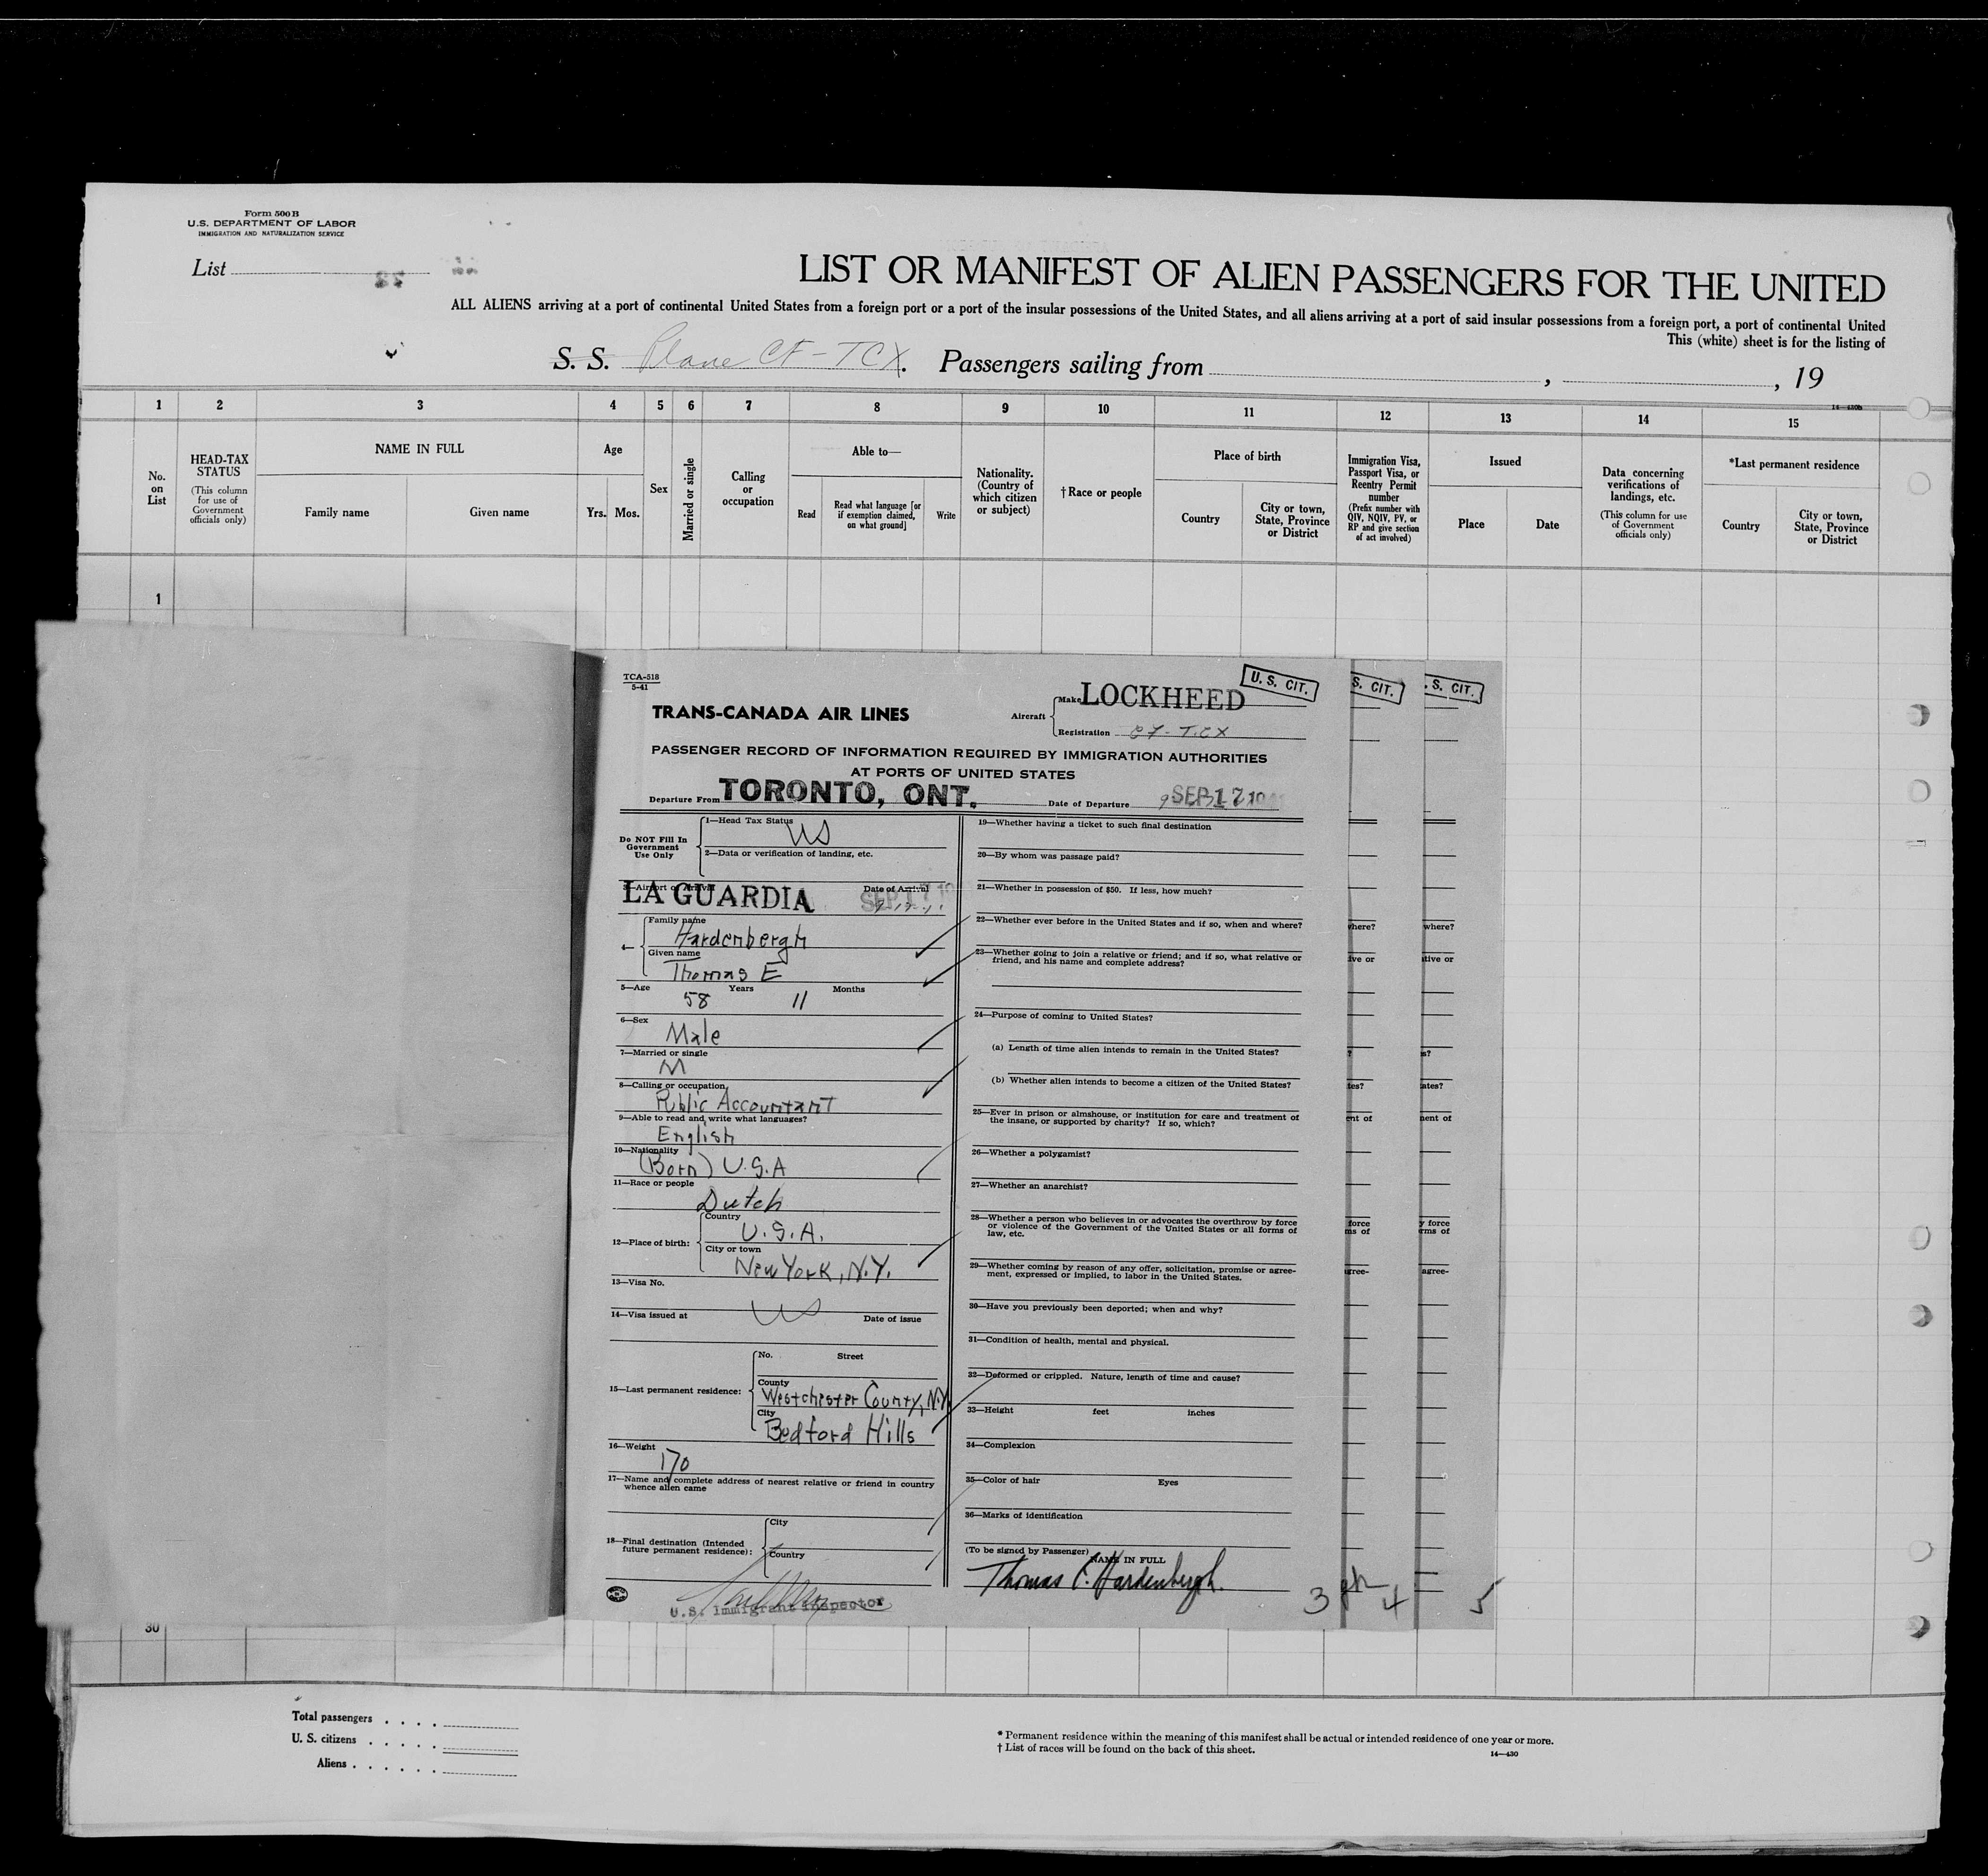 Form 500 B
U.S. DEPARTMENT OF LABOR
IMMIGRATION AND NATURALIZATION SERVICE
List
LIST OR MANIFEST OF ALIEN PASSENGERS FOR THE UNITED
ALL ALIENS arriving at a port of continental United States from a foreign port or a port of the insular possessions of the United States, and all aliens arriving at a port of said insular possessions from a foreign port, a port of continental United
This (white) sheet is for the listing of
S. S. Plane CF-TCX. Passengers sailing from , , 19
14-430b
1 2 3 4 5 6 7 8 9 10 11 12 13 14 15
No. on List
HEAD-TAX STATUS
(This column for use of Government officials only)
NAME IN FULL
Family name Given name
Age
Yrs. Mos.
Sex
Married or single
Calling or occupation
Able to—
Read
Read what language [or if exemption claimed, on what ground]
Write
Nationality. (Country of which citizen or subject)
†Race or people
Place of birth
Country
City or town, State, Province or District
Immigration Visa, Passport Visa, or Reentry Permit number
(Prefix number with QIV, NQIV, PV, or RP and give section of act involved)
Issued
Place Date
Data concerning verifications of landings, etc.
(This column for use of Government officials only)
*Last permanent residence
Country
City or town, State, Province or District
1
TCA-518
5-41
TRANS-CANADA AIR LINES
Aircraft
Make LOCKHEED
Registration CF-TCX
U. S. CIT.
S. CIT.
. S. CIT.
PASSENGER RECORD OF INFORMATION REQUIRED BY IMMIGRATION AUTHORITIES
AT PORTS OF UNITED STATES
Departure From TORONTO, ONT. Date of Departure SEP 17
Do NOT Fill In Government Use Only
1—Head Tax Status US
2—Data or verification of landing, etc.
3—Airport of Arrival LA GUARDIA Date of Arrival SEP 17
4—
Family name
Hardenbergh
Given name
Thomas E
5—Age 58 Years 11 Months
6—Sex
Male
7—Married or single
M
8—Calling or occupation
Public Accountant
9—Able to read and write what languages?
English
10—Nationality
(Born) U.S.A
11—Race or people
Dutch
12—Place of birth:
Country
U.S.A.
City or town
New York, N.Y.
13—Visa No.
14—Visa issued at US Date of issue
15—Last permanent residence:
No. Street
County
Westchester County, N.Y.
City
Bedford Hills
16—Weight
170
17—Name and complete address of nearest relative or friend in country
whence alien came
18—Final destination (Intended
future permanent residence):
City
Country
U.S. Immigrant Inspector
19—Whether having a ticket to such final destination
20—By whom was passage paid?
21—Whether in possession of $50. If less, how much?
22—Whether ever before in the United States and if so, when and where?
23—Whether going to join a relative or friend; and if so, what relative or
friend, and his name and complete address?
24—Purpose of coming to United States?
(a) Length of time alien intends to remain in the United States?
(b) Whether alien intends to become a citizen of the United States?
25—Ever in prison or almshouse, or institution for care and treatment of
the insane, or supported by charity? If so, which?
26—Whether a polygamist?
27—Whether an anarchist?
28—Whether a person who believes in or advocates the overthrow by force
or violence of the Government of the United States or all forms of
law, etc.
29—Whether coming by reason of any offer, solicitation, promise or agree-
ment, expressed or implied, to labor in the United States.
30—Have you previously been deported; when and why?
31—Condition of health, mental and physical.
32—Deformed or crippled. Nature, length of time and cause?
33—Height feet inches
34—Complexion
35—Color of hair Eyes
36—Marks of identification
(To be signed by Passenger)
NAME IN FULL
Thomas E. Hardenbergh.
3 4 5
where? where?
ive or tive or
? s?
tes? ates?
ent of nent of
force y force
ms of rms of
gree- agree-
30
Total passengers . . . .
U. S. citizens . . . . .
Aliens . . . . . .
* Permanent residence within the meaning of this manifest shall be actual or intended residence of one year or more.
† List of races will be found on the back of this sheet.
14-430